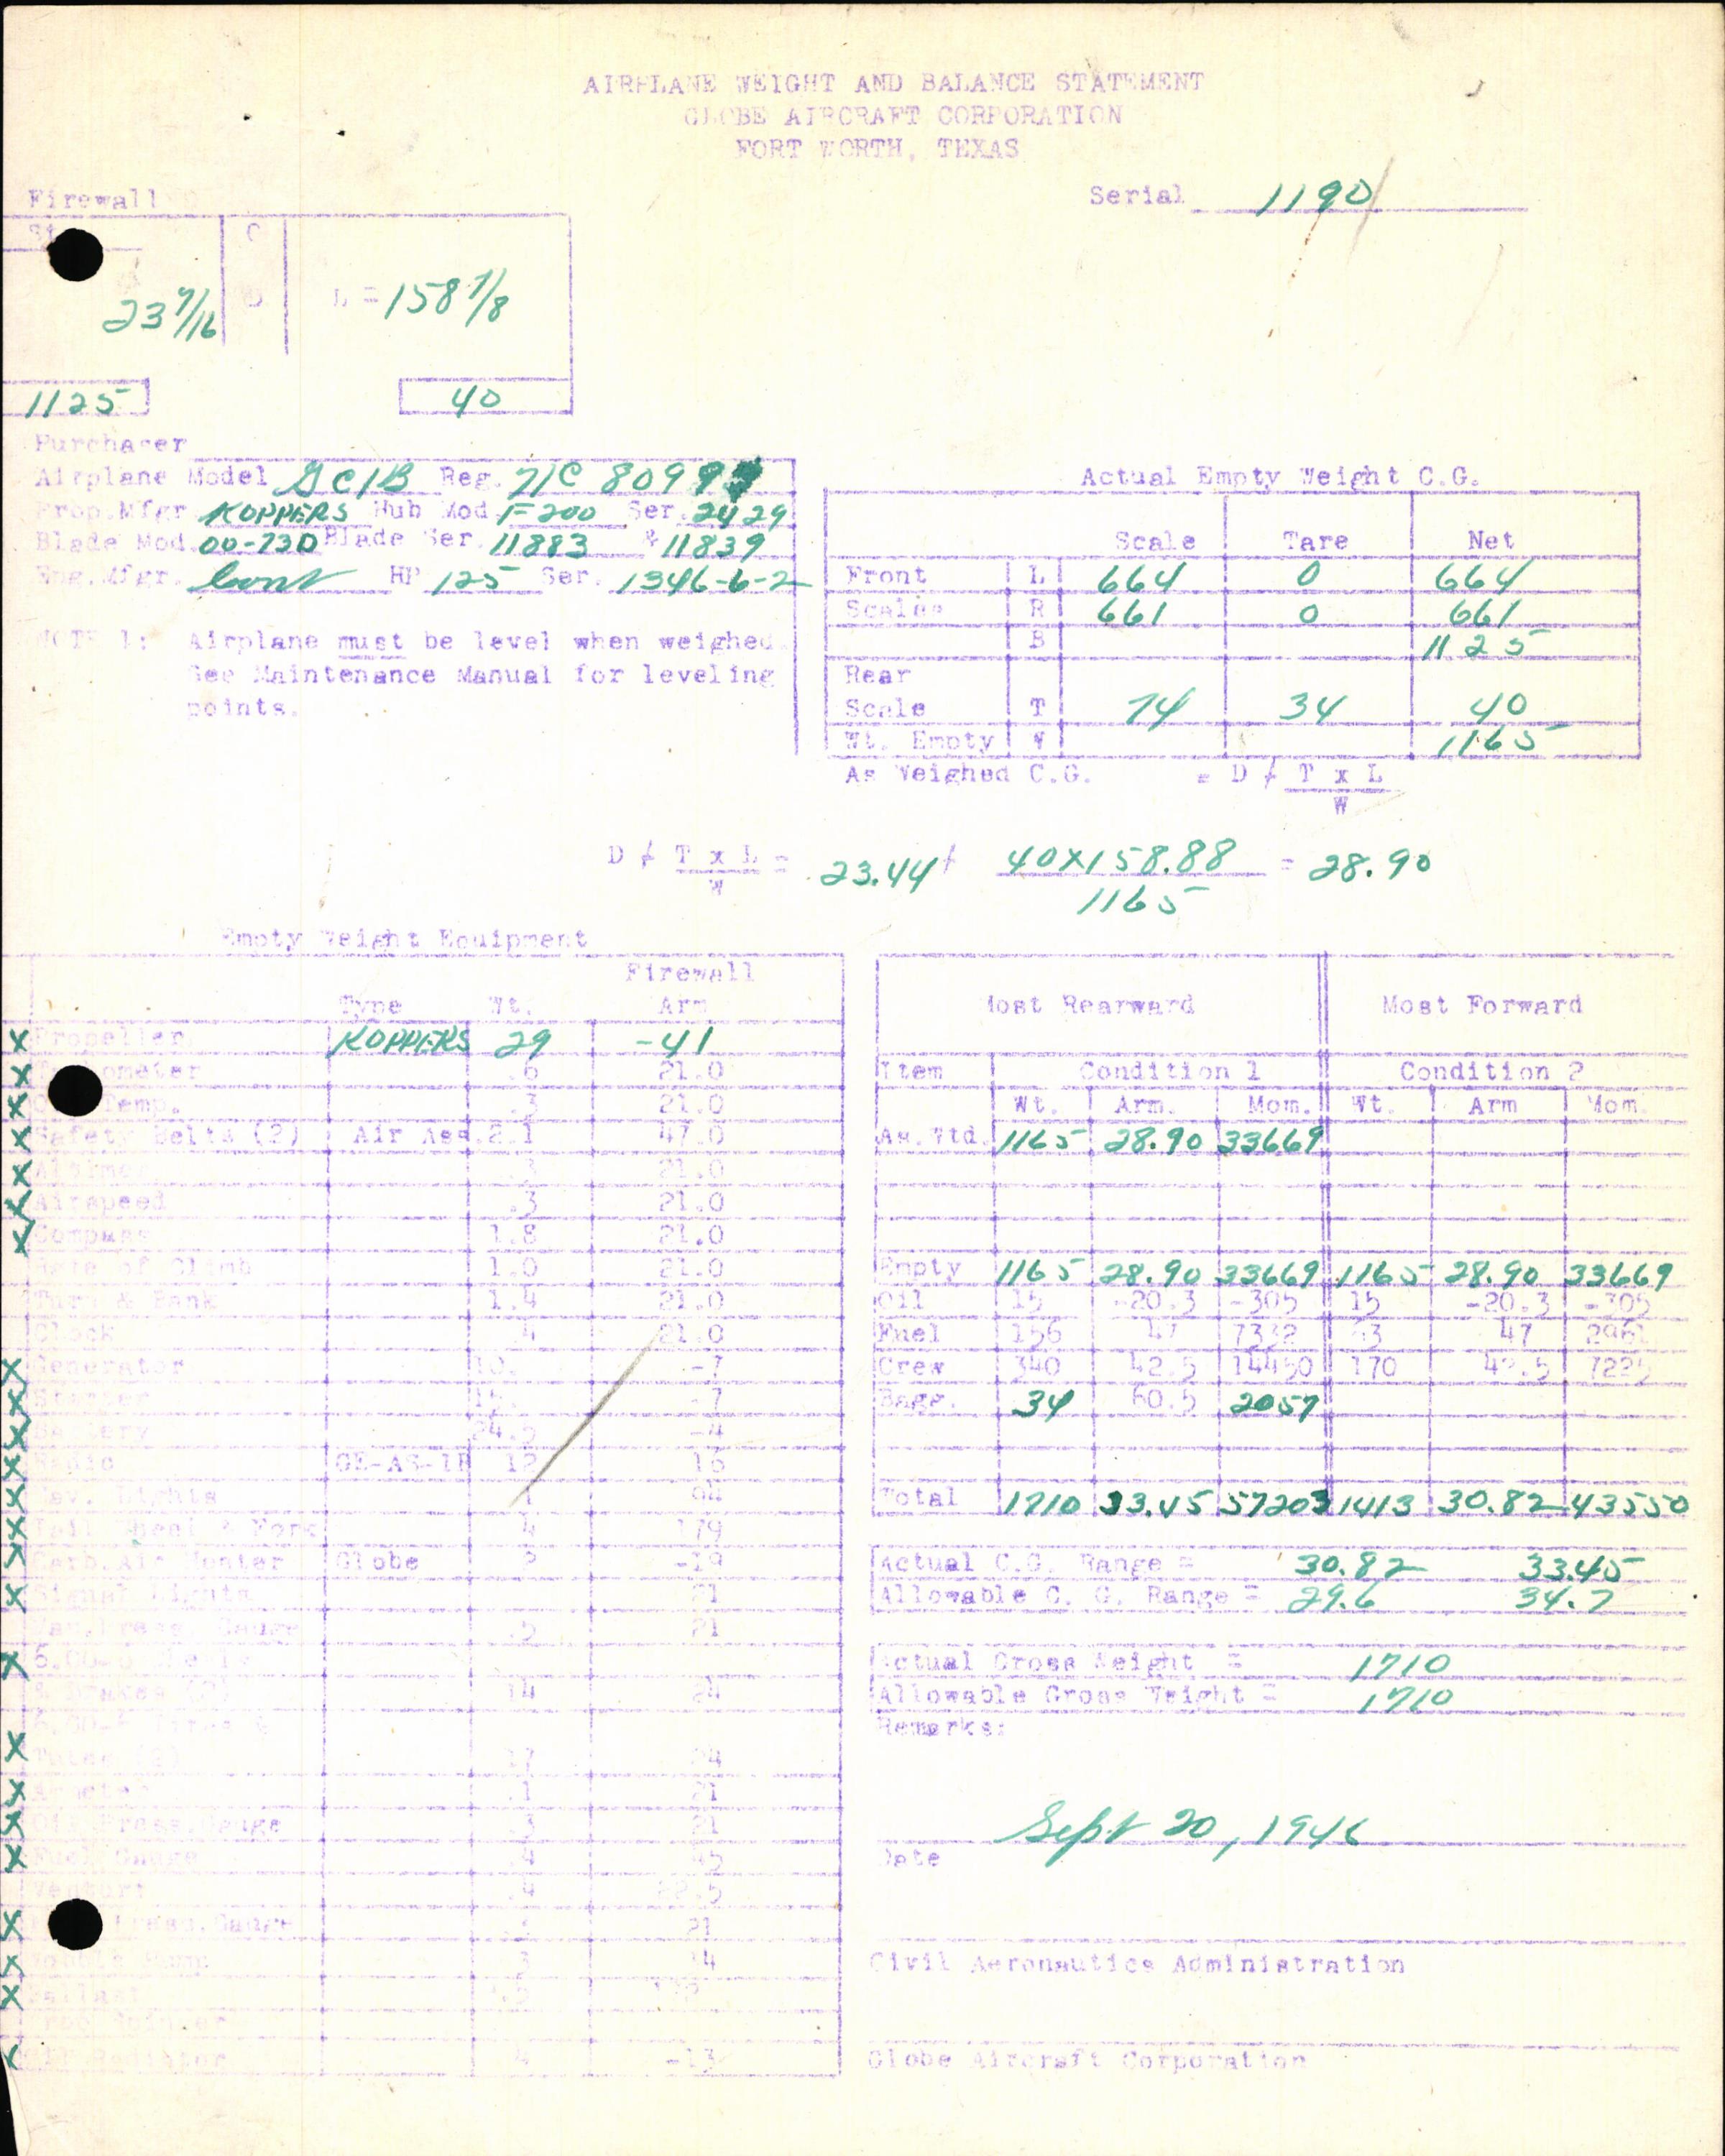 AIRPLANE WEIGHT AND BALANCE STATEMENT
GLOBE AIRCRAFT CORPORATION
FORT WORTH, TEXAS
Serial 1190
Firewall
C
23 7/16 L = 158 7/8
1125 40
Purchaser
Airplane Model GC1B Reg. NC 809
Prop.Mfgr. KOPPERS Hub Mod. F200 Ser. 2429
Blade Mod. 00-73D Blade Ser. 11883 & 11839
Eng.Mfgr. Cont HP 125 Ser. 1346-6-2
NOTE 1: Airplane must be level when weighed.
See Maintenance Manual for leveling
points.
Actual Empty Weight C.G.
Scale Tare Net
Front L 664 0 664
Scales R 661 0 661
B 1125
Rear
Scale T 74 34 40
Wt. Empty W 1165
As Weighed C.G. = D / T x L
W
D / T x L = 23.44 / 40X158.88 = 28.90
W 1165
Empty Weight Equipment
Firewall
Type Wt. Arm
X Propeller KOPPERS 29 -41
X .6 21.0
X Temp. .3 21.0
X Safety Belts (2) Air Ass. 2.1 47.0
X .3 21.0
X Airspeed .3 21.0
X Compass 1.8 21.0
Rate of Climb 1.0 21.0
Turn & Bank 1.4 21.0
Clock .4 21.0
X Generator 10. -7
X Starter -7
X Battery 24.5 -4
X Radio GE-AS-1B 12 16
X Nav. Lights 94
X Tail Wheel & Fork 4 179
X Carb.Air Heater Globe -19
X Signal Lights 21
Vac.Press. Gauge .5 21
X
& Brakes (2) 14 24
X Tubes (2) 17 24
X .1 21
X Oil Press.Gauge .3 21
X Fuel Gauge .4 45
Venturi .4
X Press.Gauge 21
X Pump 3
X Ballast
X Radiator 4 -13
Most Rearward Most Forward
Item Condition 1 Condition 2
Wt. Arm. Mom. Wt. Arm Mom.
As.Wtd. 1165 28.90 33669
Empty 1165 28.90 33669 1165 28.90 33669
Oil 15 -20.3 -305 15 -20.3 -305
Fuel 156 47 7332 63 47 2961
Crew 340 42.5 14450 170 42.5 7225
Bagg. 34 60.5 2057
Total 1710 33.45 57203 1413 30.82 43550
Actual C.G. Range = 30.82 33.45
Allowable C. G. Range = 29.6 34.7
Actual Gross Weight = 1710
Allowable Gross Weight = 1710
Remarks:
Sept 20, 1946
Date
Civil Aeronautics Administration
Globe Aircraft Corporation